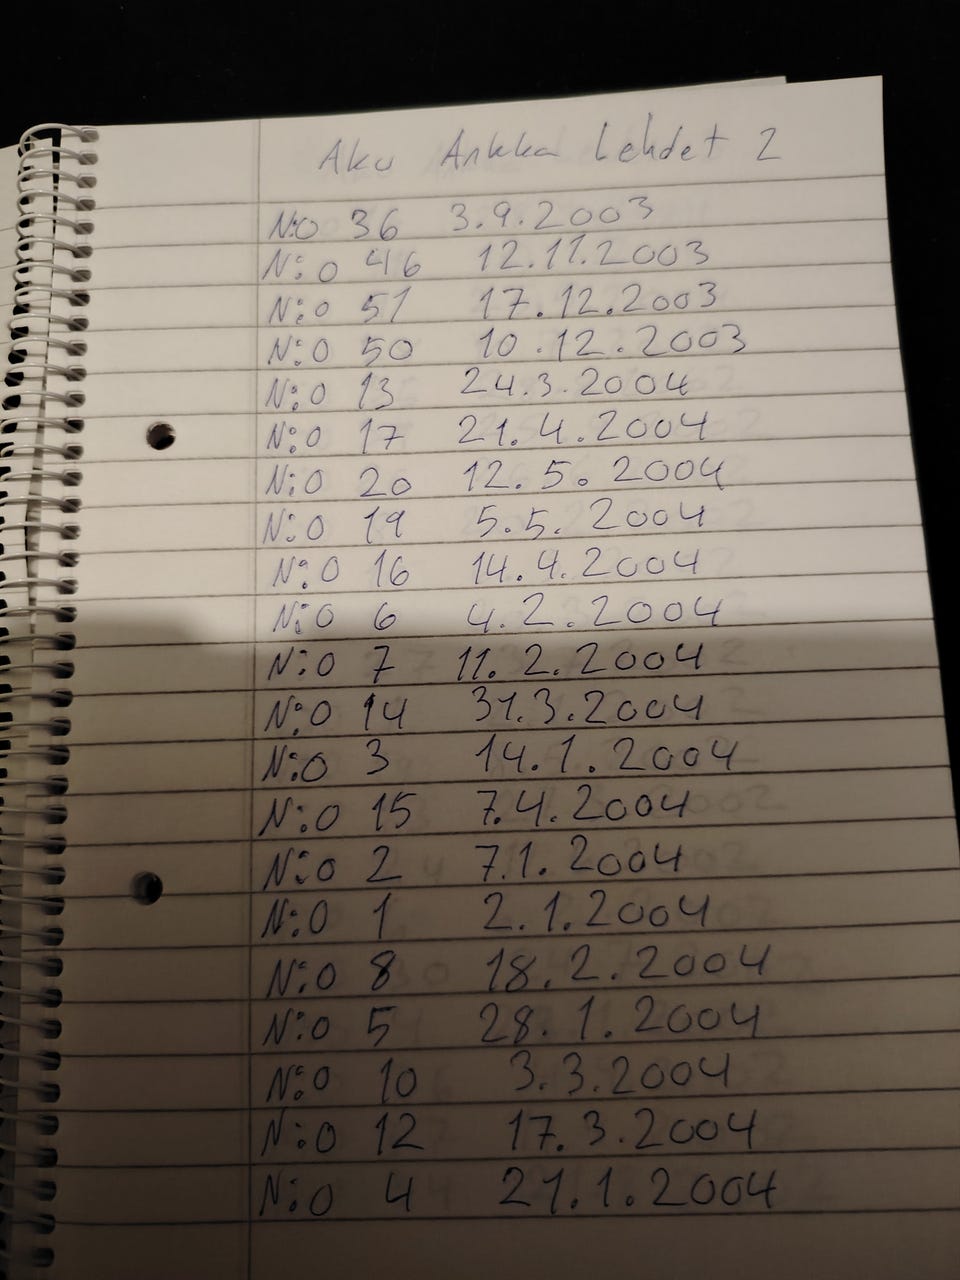 Aku Ankka Lehdet 2
N:o 36 3.9.2003
N:o 46 12.11.2003
N:o 51 17.12.2003
N:o 50 10.12.2003
N:o 13 24.3.2004
N:o 17 21.4.2004
N:o 20 12.5.2004
N:o 19 5.5.2004
N:o 16 14.4.2004
N:o 6 4.2.2004
N:o 7 11.2.2004
N:o 14 31.3.2004
N:o 3 14.1.2004
N:o 15 7.4.2004
N:o 2 7.1.2004
N:o 1 2.1.2004
N:o 8 18.2.2004
N:o 5 28.1.2004
N:o 10 3.3.2004
N:o 12 17.3.2004
N:o 4 21.1.2004